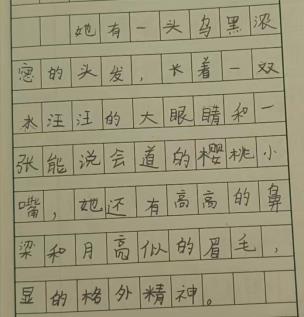 她有一头乌黑浓
密的头发，长着一双
水汪汪的大眼睛和一
张能说会道的樱桃小
嘴，她还有高高的鼻
梁和月亮似的眉毛，
显的格外精神。